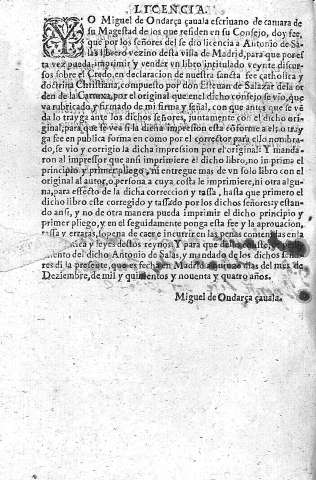 LICENCIA.
YO Miguel de Ondarça çauala escriuano de camara de
su Magestad de los que residen en su Consejo, doy fee,
que por los señores del se dio licencia a Antonio de Sa-
las librero vezino desta villa de Madrid, para que por es-
ta vez pueda imprimir y vender vn libro intitulado veynte discur-
sos sobre el Credo, en declaracion de nuestra sancta fee catholica y
doctrina Christiana, compuesto por don Esteuan de Salazar de la or
den de la Cartuxa, por el original que en el dicho consejo se vio, que
va rubricado, y firmado de mi firma y señal, con que antes que se vē
da lo trayga ante los dichos señores, juntamente con el dicho ori-
ginal, para que se vea si la dicha impression esta cōforme a el: o tray
ga fee en publica forma en como por el corrector para ello nombra-
do, se vio y corrigio la dicha impression por el original: Y manda-
ron al impressor que ansi imprimiere el dicho libro, no imprima el
principio y primer pliego, ni entregue mas de vn solo libro con el
original al autor, o persona a cuya costa le imprimiere, ni otra algu-
na, para efecto de la dicha correccion y tassa, hasta que primero el
dicho libro este corregido y tassado por los dichos señores: y estan-
do ansi, y no de otra manera pueda imprimir el dicho principio y
primer pliego, y en el seguiente ponga esta fee y la aprouacion,
tassa y erratas, so pena de caer e incurrir en las penas contenidas en la
y leyes destos reynos. Y para que dello conste, de
mento del dicho Antonio de Salas, y mandado de los dichos seño-
res di la presente, que es fecha en Madrid a quinze dias del mes de
Deziembre, de mil y quinientos y nouenta y quatro años.
Miguel de Ondarça çauala.